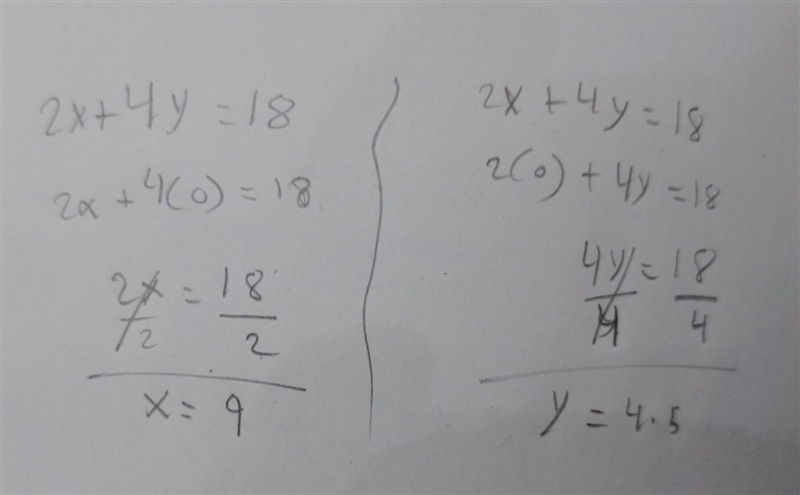 2x+4y=18
2x+4(0)=18
2x/2 = 18/2
x=9
2x+4y=18
2(0)+4y=18
4y/4 = 18/4
y=4.5